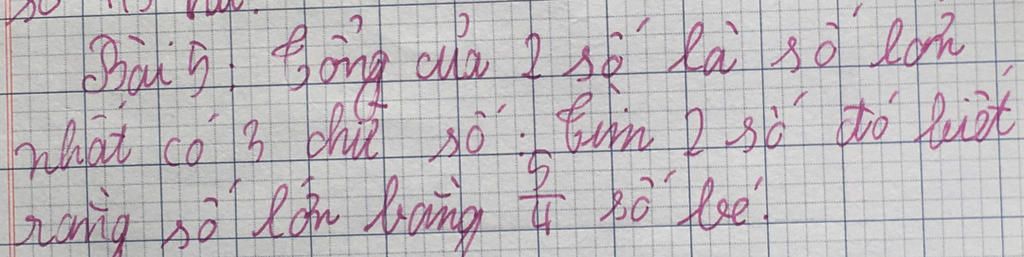 Bài 5: Tổng của 2 số là số lớn
nhất có 3 chữ số. Tìm 2 số đó biết
rằng số lớn bằng 5/4 số bé.